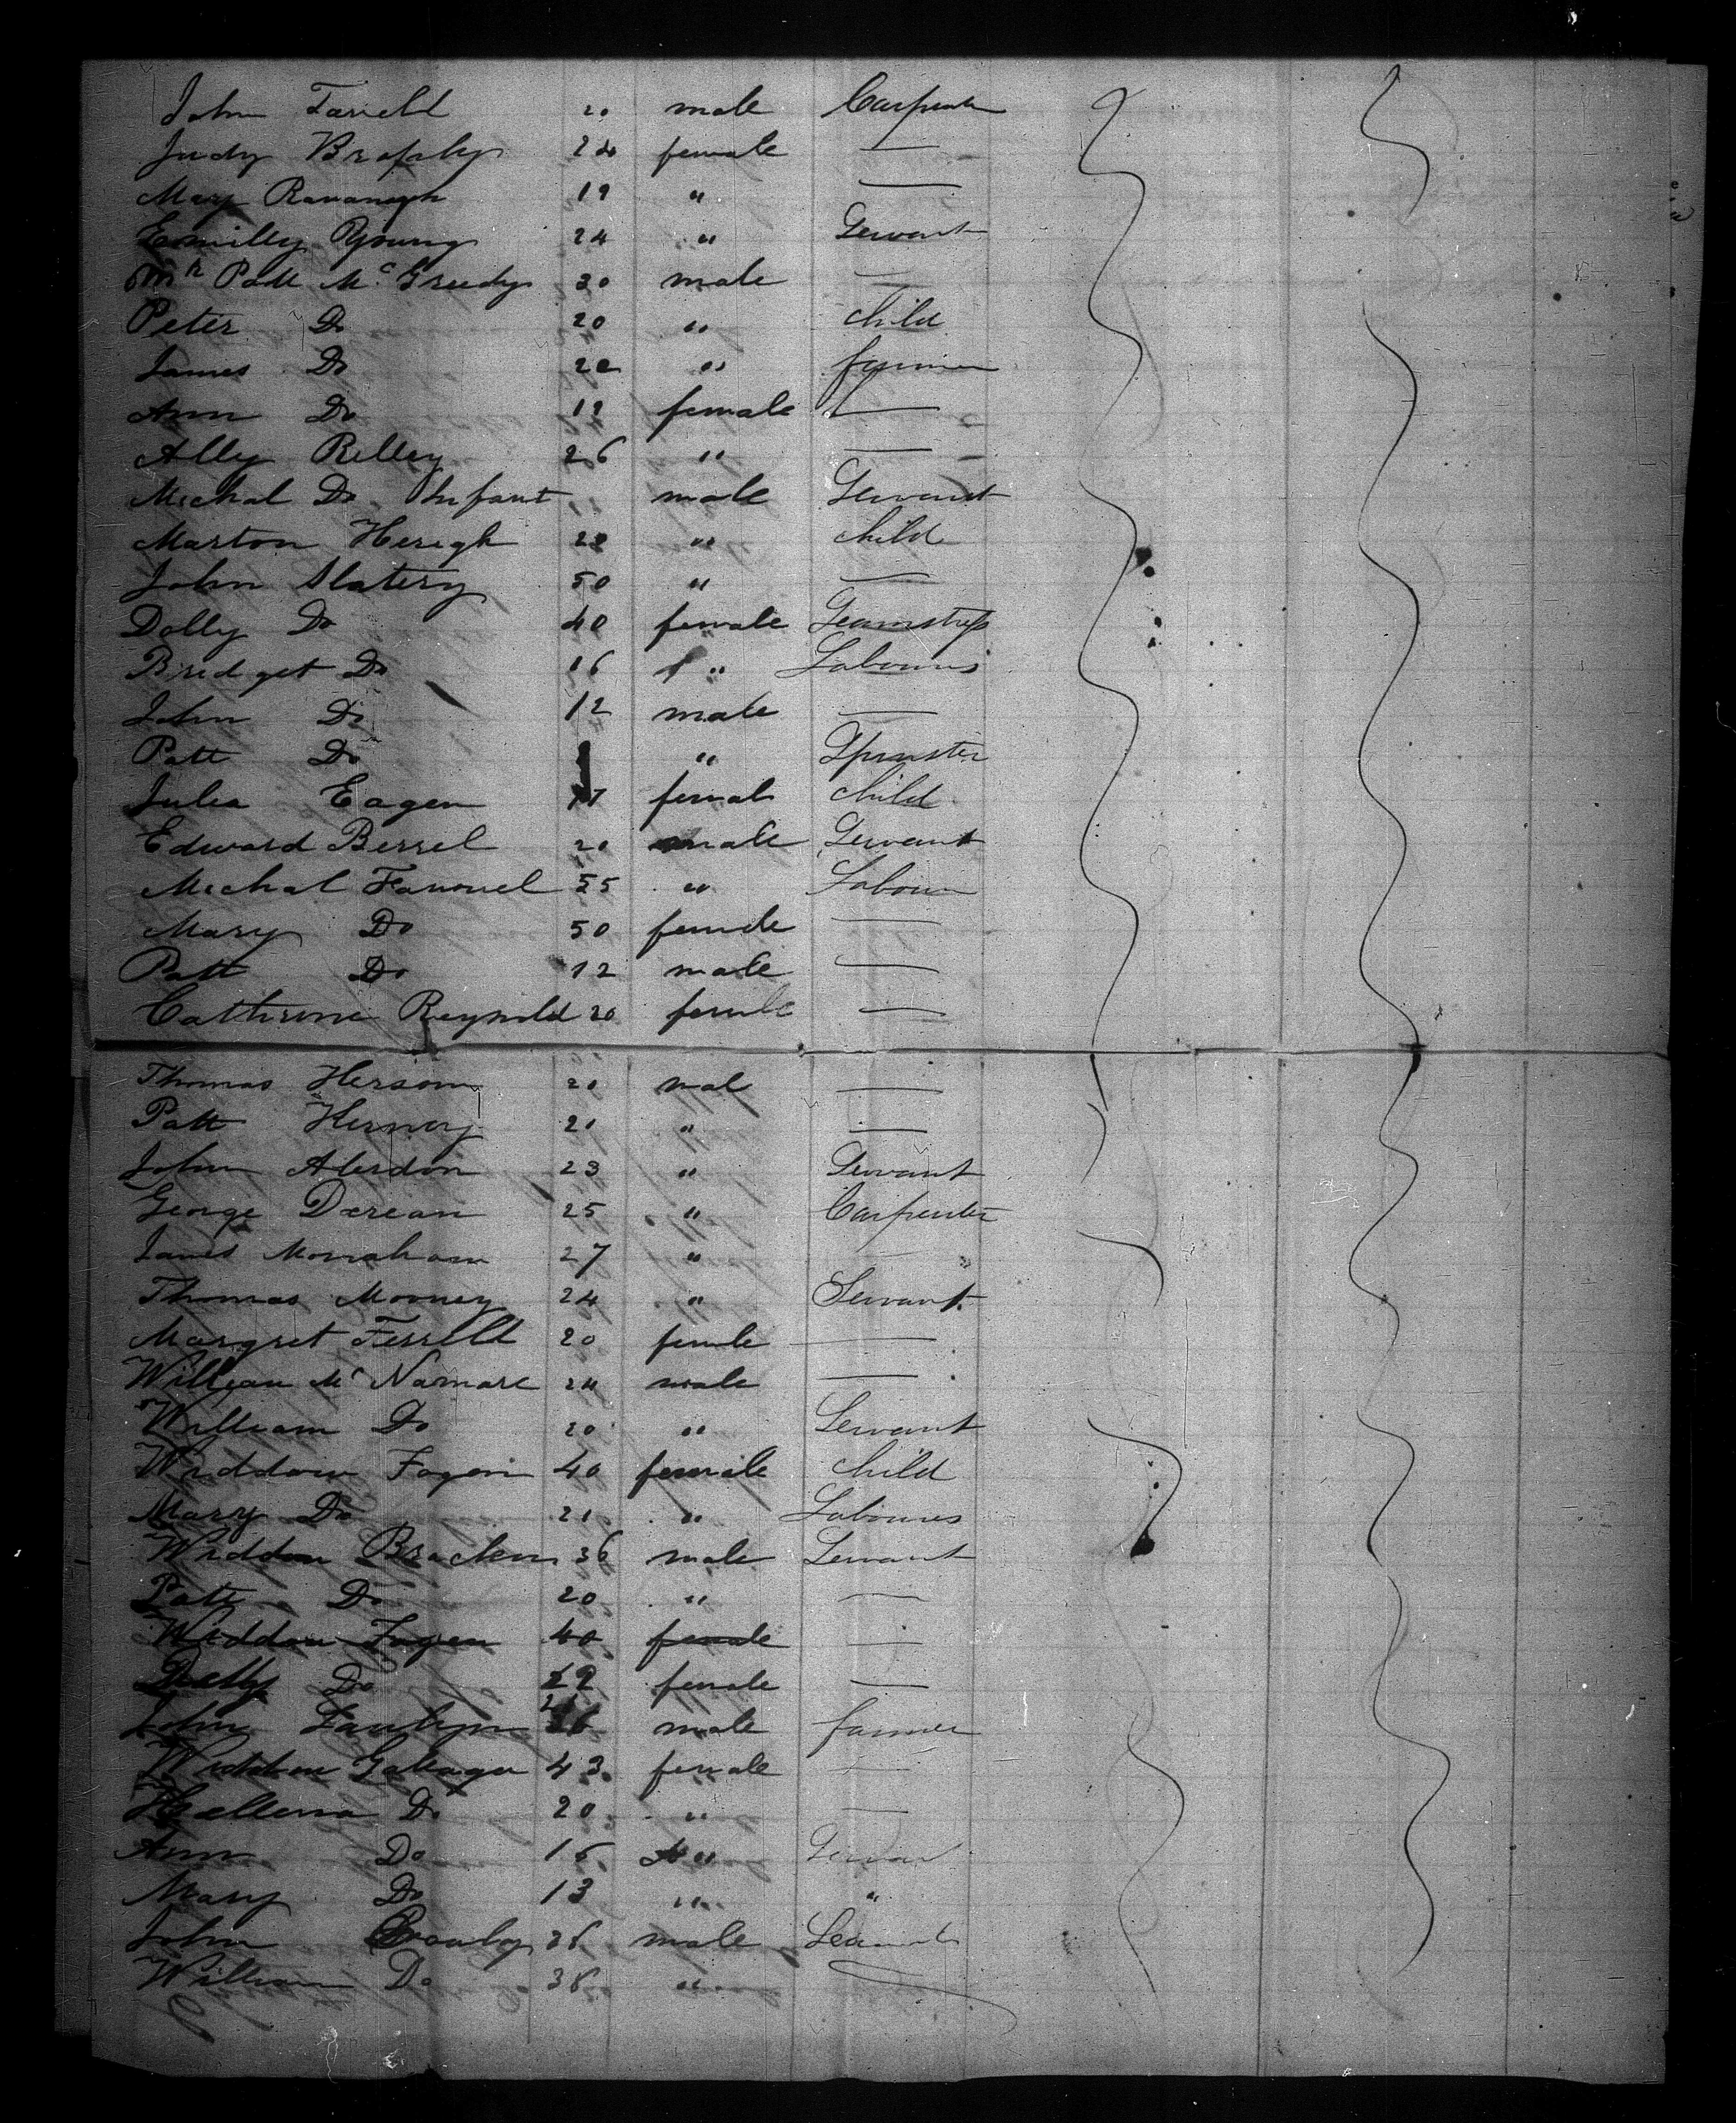 John Farrell 20 male Carpenter
Judy Brophy 24 female —
Mary Kavanagh 19 " —
Emilly Young 24 " Servant
Mr Patt Mc Greedy 30 male —
Peter Do 20 " child
James Do 22 " farmer
Ann Do 19 female —
Ally Relley 26 " —
Michal Do Infant male Servant
Marton Heregh 28 " child
John Slatery 50 " —
Dolly Do 40 female Seamstress
Bridget Do 16 " Labourer
John Do 12 male —
Patt Do " Spinster
Julia Eagen 17 femal child
Edward Berrel 20 male Servant
Michal Farrouel 55 " Labour
Mary Do 50 female —
Patt Do 12 male —
Cathrine Reynold 20 female —
Thomas Hersom 20 mal —
Patt Hernoy 21 " —
John Alerdon 23 " Servant
George Derean 25 " Carpenter
James Monraham 27 " "
Thomas Mooney 24 " Servant
Margret Ferrell 20 female —
William Mc Namare 24 male —
William Do 20 " Servant
Widdow Fogen 40 female child
Mary Do 21 " Labourer
Widdow Bracken 36 male Servant
Patt Do 20 " —
Widdow Fogen 40 female —
Do 19 female —
John 26 male farmer
Widdow Gallager 43 female —
Do 20 " —
Ann Do 16 " Servant
Mary Do 13 " "
John 36 male Servant
William Do 36 "